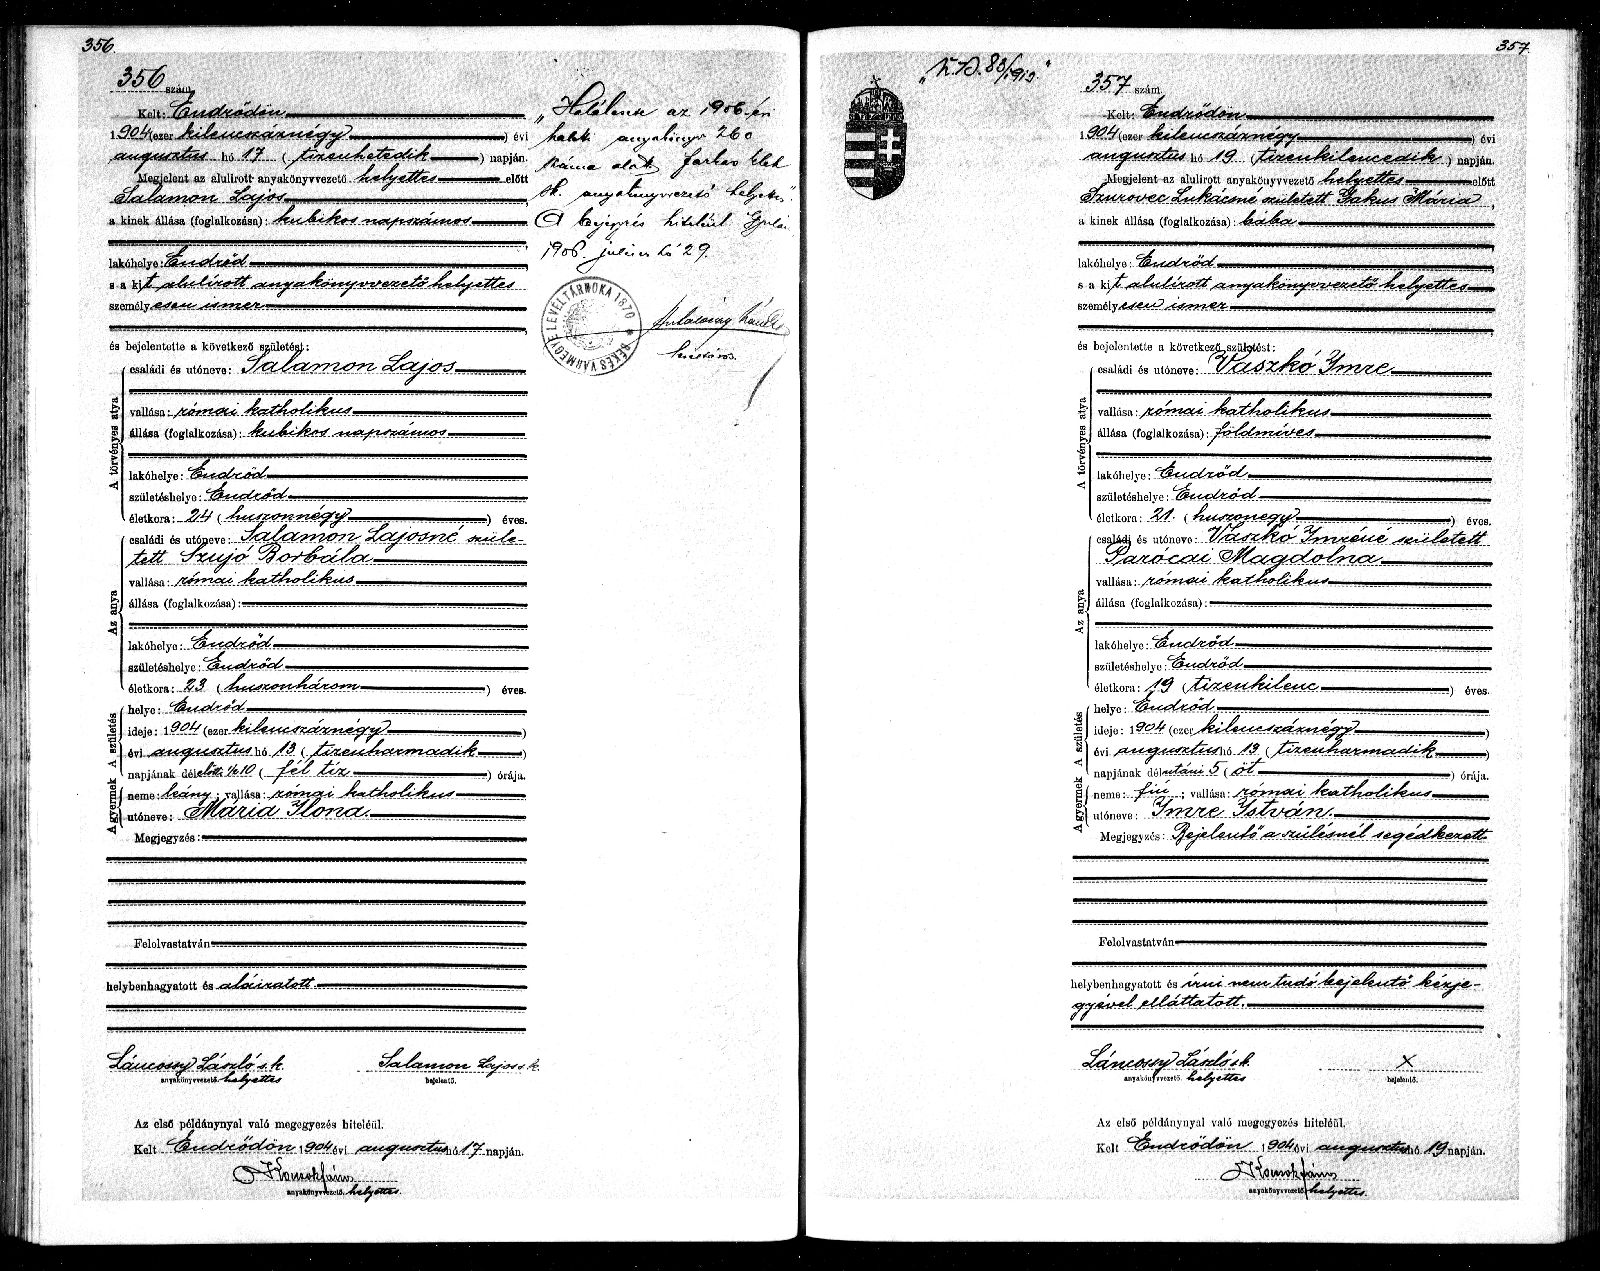 356.
356 szám.
Kelt: Endrődön
1904 (ezer kilencszáznégy) évi
augusztus hó 17 (tizenhetedik) napján.
Megjelent az alulirott anyakönyvvezető helyettes előtt
Salamon Lajos
a kinek állása (foglalkozása): kubikos napszámos
lakóhelye: Endrőd
s a kit alulírott anyakönyvvezető helyettes
személyesen ismer
és bejelentette a következő születést:
A törvényes atya
családi és utóneve: Salamon Lajos
vallása: római katholikus
állása (foglalkozása): kubikos napszámos
lakóhelye: Endrőd
születéshelye: Endrőd
életkora: 24 (huszonnégy) éves.
Az anya
családi és utóneve: Salamon Lajosné szüle-
tett Szujó Borbála
vallása: római katholikus
állása (foglalkozása):
lakóhelye: Endrőd
születéshelye: Endrőd
életkora: 23 (huszonhárom) éves.
A gyermek A születés
helye: Endrőd
ideje: 1904 (ezer kilencszáznégy)
évi augusztus hó 13 (tizenharmadik)
napjának délelőtt ½10 (fél tíz) órája.
neme: leány; vallása: római katholikus
utóneve: Mária Ilona.
Megjegyzés:
Felolvastatván
helybenhagyatott és aláiratott
László s.k. Salamon Lajos s.k.
anyakönyvvezető helyettes bejelentő.
Az első példánynyal való megegyezés hiteléül.
Kelt Endrődön 1904 évi augusztus hó 17 napján.
anyakönyvvezető helyettes.
„Halálesete az 1906-évi
halotti anyakönyv 260
száma alatt Farkas
sk. anyakönyvvezető helyettes."
A bejegyzés hiteléül Gyula
1906 július hó 29.
BÉKÉS VÁRMEGYE LEVÉLTÁRNOKA 1870
357.
83/1913."
357 szám.
Kelt: Endrődön
1904 (ezer kilencszáznégy) évi
augusztus hó 19 (tizenkilencedik) napján.
Megjelent az alulirott anyakönyvvezető helyettes előtt
Szurovec Lukácsné született Gakus Mária
a kinek állása (foglalkozása): bába
lakóhelye: Endrőd
s a kit alulírott anyakönyvvezető helyettes
személyesen ismer
és bejelentette a következő születést:
A törvényes atya
családi és utóneve: Vaszkó Imre
vallása: római katholikus
állása (foglalkozása): földmíves
lakóhelye: Endrőd
születéshelye: Endrőd
életkora: 21. (huszonegy) éves.
Az anya
családi és utóneve: Vaszkó Imréné született
Parócai Magdolna
vallása: római katholikus
állása (foglalkozása):
lakóhelye: Endrőd
születéshelye: Endrőd
életkora: 19 (tizenkilenc) éves.
A gyermek A születés
helye: Endrőd
ideje: 1904 (ezer kilencszáznégy)
évi augusztus hó 13 (tizenharmadik)
napjának délutáni 5 (öt) órája.
neme: fiú; vallása: római katholikus
utóneve: Imre István.
Megjegyzés: Bejelentő a szülésnél segédkezett
Felolvastatván
helybenhagyatott és írni nem tudó bejelentő kézje-
gyével elláttatott.
László s.k. x
anyakönyvvezető helyettes bejelentő.
Az első példánynyal való megegyezés hiteléül.
Kelt Endrődön 1904 évi augusztus hó 19 napján.
anyakönyvvezető helyettes.